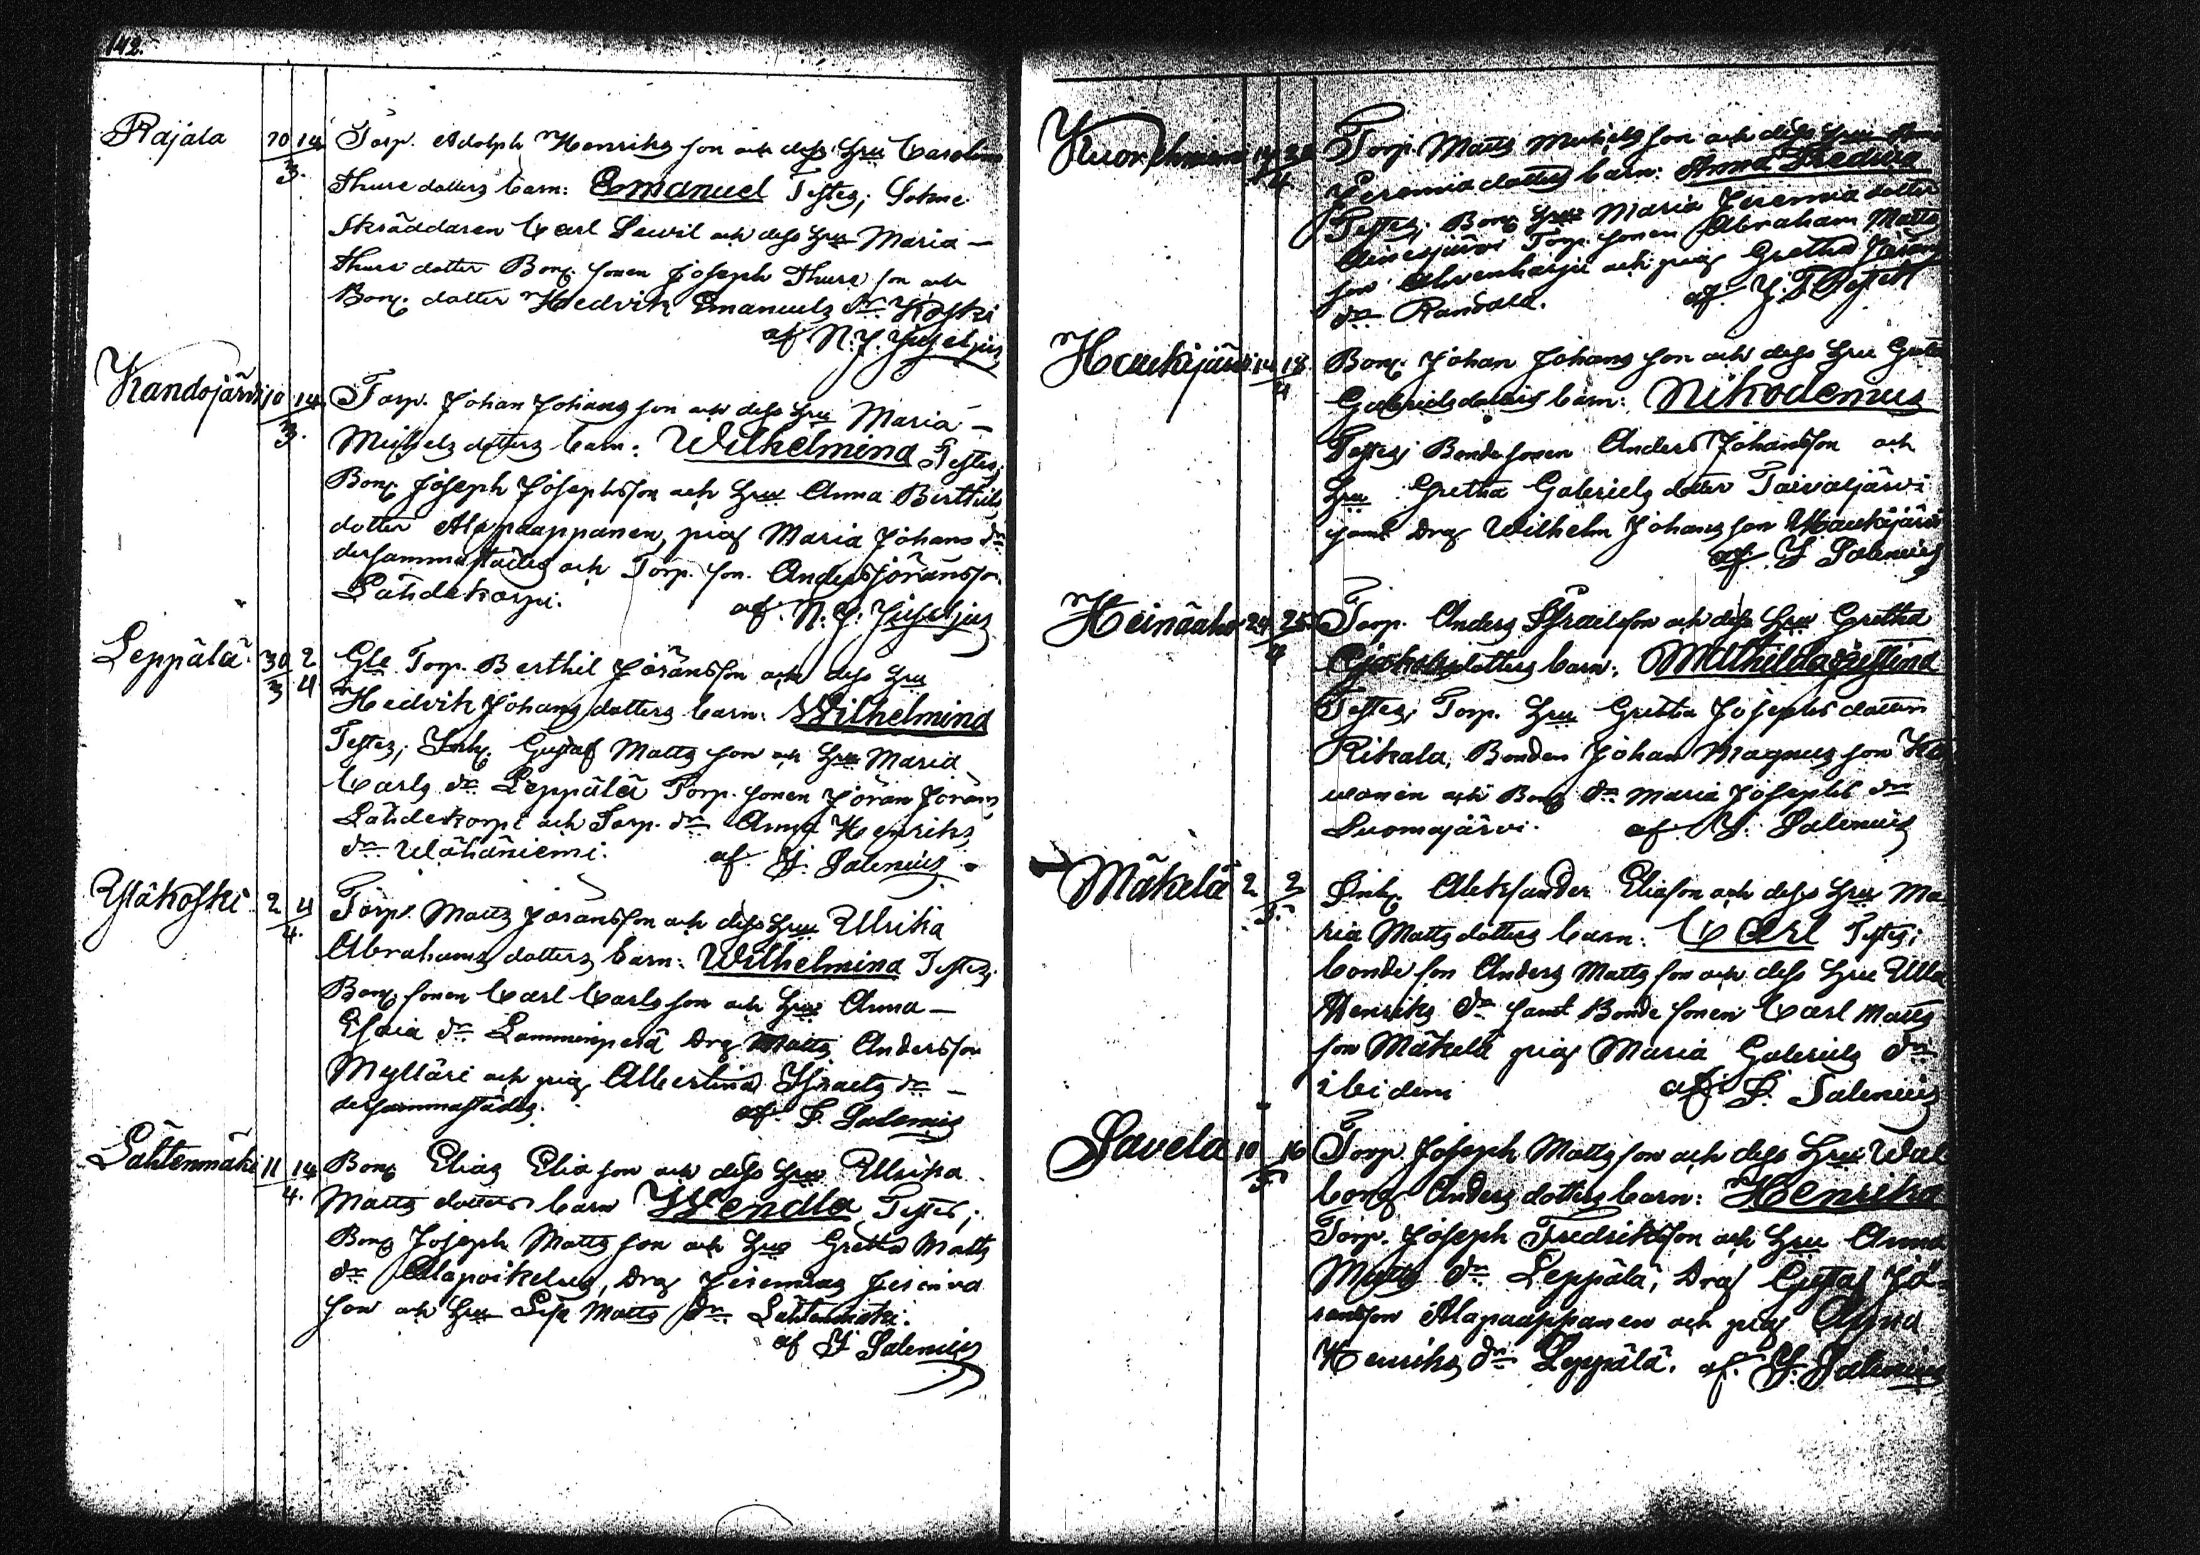 142.
Rajala 10 14 Torp. Adolph Henriks son och dess Hru Carolina
3. Thure dotters barn: Emanuel Testes; Sokne
Skräddaren Carl Lewil och dess Hru Maria -
Thure dotter Bonq. sonen Joseph Thure son och
Bonq. dotter Hedvik Emanuels dr. Koski
af N. J.
Kandojärvi 10 14 Torp. Johan Johans son och dess Hru Maria -
3. Michels dotters barn: Wilhelmina Testes;
Bonq. Joseph Josephsson och Hru Anna Berthils
dotter Alapaappanen, pig Maria Johans dr
dersammastädes och Torp. son. Anders Jöransson
Lähdekorpi. af. N. J.
Leppälä 30 2 Gle Torp. Berthil Jöransson och dess Hru
3 4 Hedvik Johans dotters barn: Wilhelmina
Testes; Gustaf Matts son och Hru Maria
Carls dr. Leppälä Torp. sonen Jöran Jörans
Lähdekorpi och Torp. dr Anna Henriks
dr. Wähäniemi. af. J. Salenius
Yläkoski 2 4 Torp. Matts Jöransson och dess Hru Ullrika
4. Abrahams dotters barn: Wilhelmina Testes;
Bonq. sonen Carl Carls son och Hru Anna -
Esaia dr. Lamminperä drq Matts Andersson
Mylläri och pig Albertina Israels dr -
dersammastädes. af. J. Salenius
Lähtenmäki 11 14 Bonq Elias Elia son och dess Hru Ullrika
4. Matts dotters barn Wendla Testes;
Bonq Joseph Matts son och Hru Gretha Matts
dr Alapoikelus, drq Jeremias Jeremia
son och Hru Lisa Matts dr Lähtenmäki.
af J Salenius
14 Torp. Matts Michels son och dess Hru
4 Jeremia dotters barn: Anna Fredrica
Testes; Bonq Hru Maria Jeremia dotter
Torp. sonen Abraham Matts
son Ahvenharju och pig Gretha
dr. Randala. af
Haukijärvi 14 18 Bonq. Johan Johans son och dess Hru Greta
4 Gabriels dotters barn: Nikodemus
Testes; Bonde sonen Anders Johansson och
Hru Gretha Gabriels dotter Taivaljärvi
samt drq Wilhelm Johans son Haukijärvi
af. J Salenius
Heinäaho 24 25 Torp. Anders Israelsson och dess Hru Gretha
4 dotters barn: Mathilda
Testes; Torp. Hru Gretha Josephs dotter
Rikala, Bonden Johan Magnus son
och Bonq dr Maria Josephs dr
Luomajärvi. af. J. Salenius
Mäkelä 2 2 Aleksander Eliasson och dess Hru Ma
5. ria Matts dotters barn: Carl Testes;
bonde son Anders Matts son och dess Hru Ulla
Henriks dr samt Bonde sonen Carl Matts
son Mäkelä pig Maria Gabriels dr
ibidem af. J. Salenius
Savela 10 16 Torp. Joseph Matts son och dess Hru Wal
5 borg Anders dotters barn: Henrika
Torp. Joseph Fredriksson och Hru Anna
Matts dr Leppälä, drq Gustaf Jö
ransson Alapaappanen och pig Anna
Henriks dr. Leppälä. af. J. Salenius